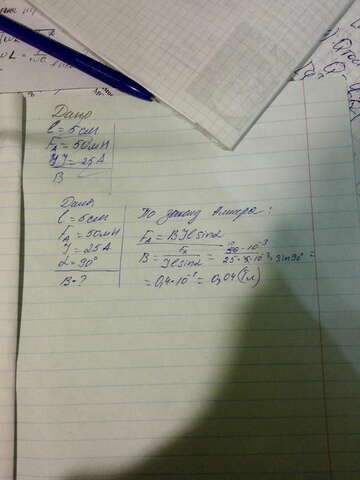 Дано
l = 5см
F_A = 50мН
I = 25А
B
Дано
l = 5см
F_A = 50мН
I = 25А
α = 90°
B - ?
По закону Ампера:
F_A = BIl sinα
B = F_A / Il sinα = 50·10⁻³ / 25·5·10⁻²·sin90° =
= 0,4·10⁻¹ = 0,04 (Тл)